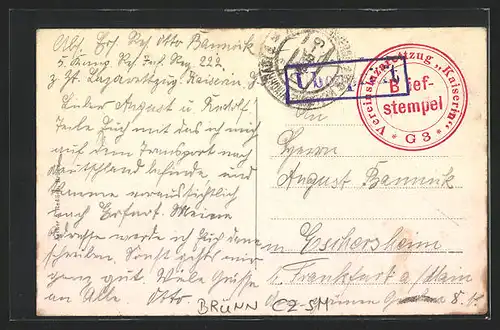 Abs. Ers. Res. Otto Bannik
5. Komp. Res. Inf. Reg. 222.
z. Zt. Lazarettzug Kaiserin
Lieber August u. Rudolf
Teile Euch mit das ich mich
auf dem Transport nach
Deutschland befinde und
komme voraussichtlich
nach Erfurt. Meine
Adresse werde ich Euch dann
schreiben. Sonst gehts mir
ganz gut. Viele Grüsse
an Alle. Otto
Vereinslazarettzug „Kaiserin“
Brief-
stempel
* G 3 *
An
Herrn
August Bannik
in Eschersheim
b. Frankfurt a/Main
BRÜNN CZ SM